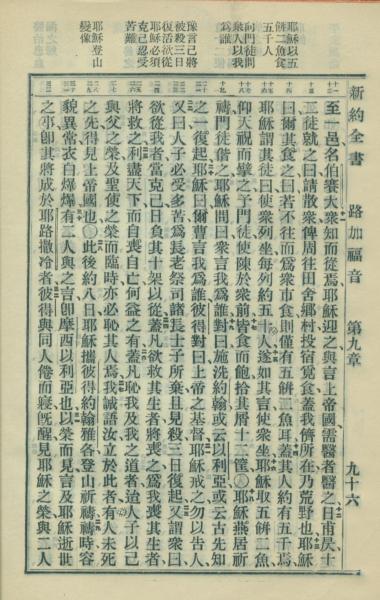 新約全書 路加福音 第九章 九十六
耶穌以五
餅二魚食
五千人
向門徒問
衆人以我
爲誰
豫言己將
被殺三日
復活欲從
耶穌必須
克己忍受
苦難
耶穌登山
變像
至一邑名伯賽大衆知而從焉耶穌迎之與言上帝國需醫者醫之日甫昃十
二徒就之曰請散衆俾周往田舍鄉村投宿覓食蓋我儕所在乃荒野也耶穌
曰爾其食之曰若不往而爲衆市食則僅有五餅二魚耳蓋其人約有五千焉
耶穌謂其徒曰使衆列坐每列約五十人遂如其言使衆坐耶穌取五餅二魚
仰天祝而擘之予門徒使陳於衆前皆食而飽拾其屑十二筐〇耶穌燕居祈
禱門徒偕之耶穌問曰衆言我爲誰對曰施洗約翰或云以利亞或云古先知
之一復起耶穌曰爾曹言我爲誰彼得對曰上帝之基督耶穌戒之勿以告人
又曰人子必受多苦爲長老祭司諸長士子所棄且見殺三日復起又謂衆曰
欲從我者當克己日負其十架以從蓋凡欲救其生者將喪之爲我喪其生者
將救之利盡天下而自喪自亡何益之有蓋凡恥我及我之道者迨人子以己
與父之榮及聖使之榮而臨時亦必恥其人焉我誠語汝立於此者有人未死
之先得見上帝國也〇此後約八日耶穌攜彼得約翰雅各登山祈禱禱時容
貌異常衣白爍爍有二人與之言卽摩西以利亞也以榮而見言及耶穌逝世
之事卽其將成於耶路撒冷者彼得與同人倦而寢旣醒見耶穌之榮與二人